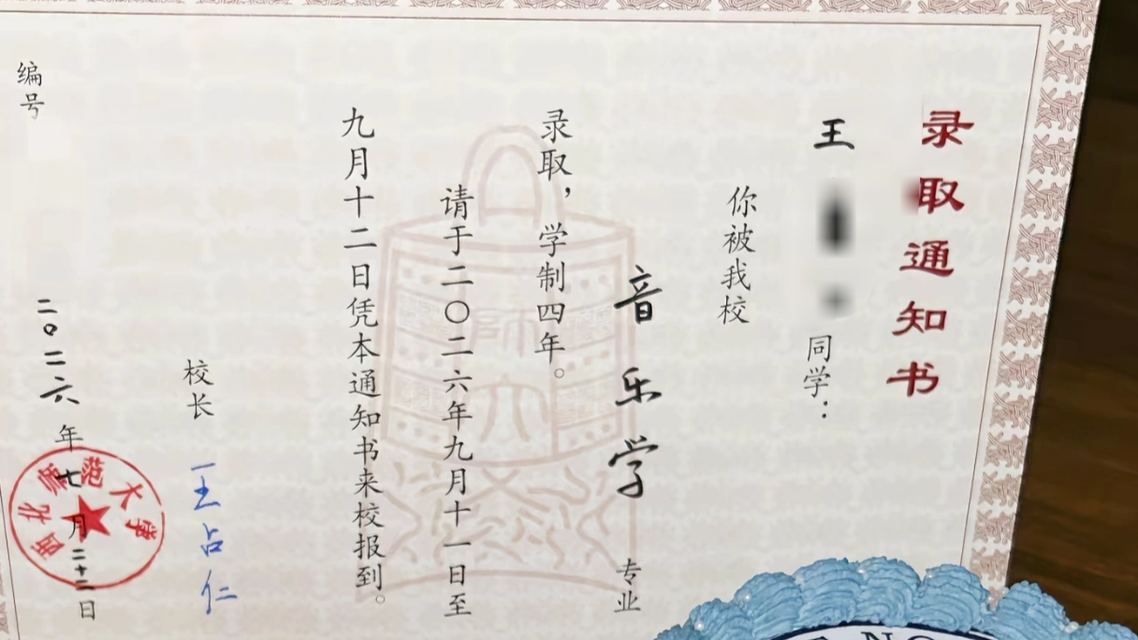 录取通知书
王
同学：
你被我校
音乐学 专业
录取，学制四年。
请于二〇二六年九月十一日至
九月十二日凭本通知书来校报到。
校长 王占仁
二〇二六年七月二十二日
西北师范大学
编号